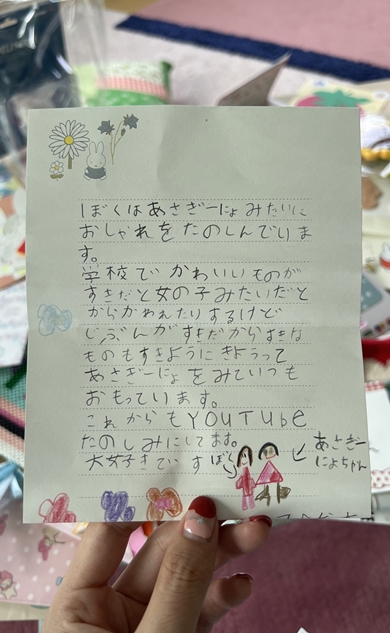 ぼくはあさぎーにょみたいに
おしゃれをたのしんでいま
す。
学校でかわいいものが
すきだと女の子みたいだと
からかわれたりするけど
じぶんがすきだからすきな
ものもすきようにきようって
あさぎーにょをみていつも
おもっています。
これからもYOUTUbe
たのしみにしてます。
大好きです ぼく
あさぎー
にょちゃん